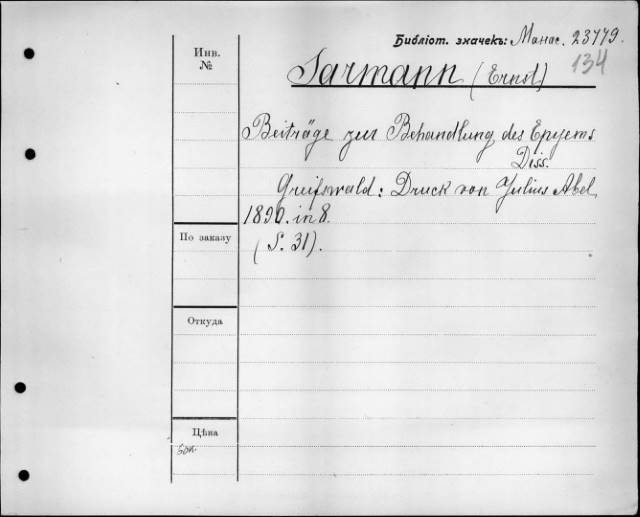 Библіот. значекъ: Манас. 23779.
134
Инв.
№
Sarmann (Ernst)
Beiträge zur Behandlung des Epyems
Diss.
Greifswald: Druck von Julius Abel
1890. in 8.
(S. 31).
По заказу
Откуда
Цѣна
50к.